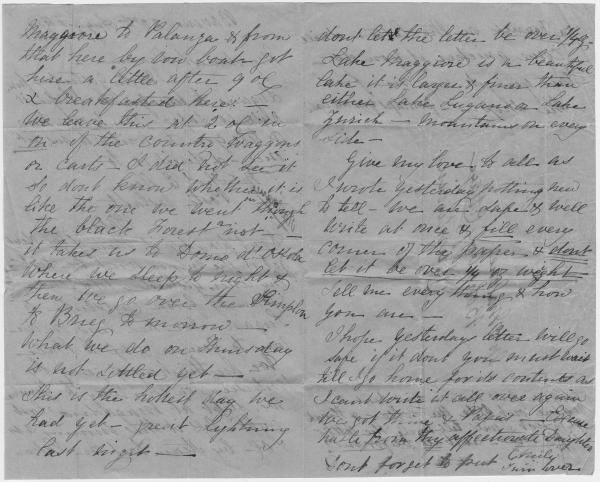 Maggiore to Palanza & from
that here by row boat got
here a little after 9 ol
& breakfasted here: —
We leave this at 2 ol in
on of the country waggons
or carts — I did not see it
so dont know whether it is
like the one we went through
the black Forest "not" —
it takes us to Domo d'Ossola
where we sleep to night &
then we go over the Simplon
to Brieg to morrow —
What we do on Thursday
is not settled yet —
This is the hottest day we
had yet — great lightning
last night —
dont let the letter be over 1/4 oz —
Lake Maggiore is a beautiful
lake it is large & finer than
either Lake Lugano or Lake
Zurich — Mountains on every
side —
Give my love to all as
I wrote yesterday nothing new
to tell we are safe & well
Write at once & fill every
corner of the paper & dont
let it be over 1/4 oz weight
Tell me every thing & how
you are —
I hope yesterdays letter will go
safe if it dont you must wait
till I go home for its contents as
I cant write it all over again
We got time
haste from thy affectionate Daughter
Dont forget to put Emily